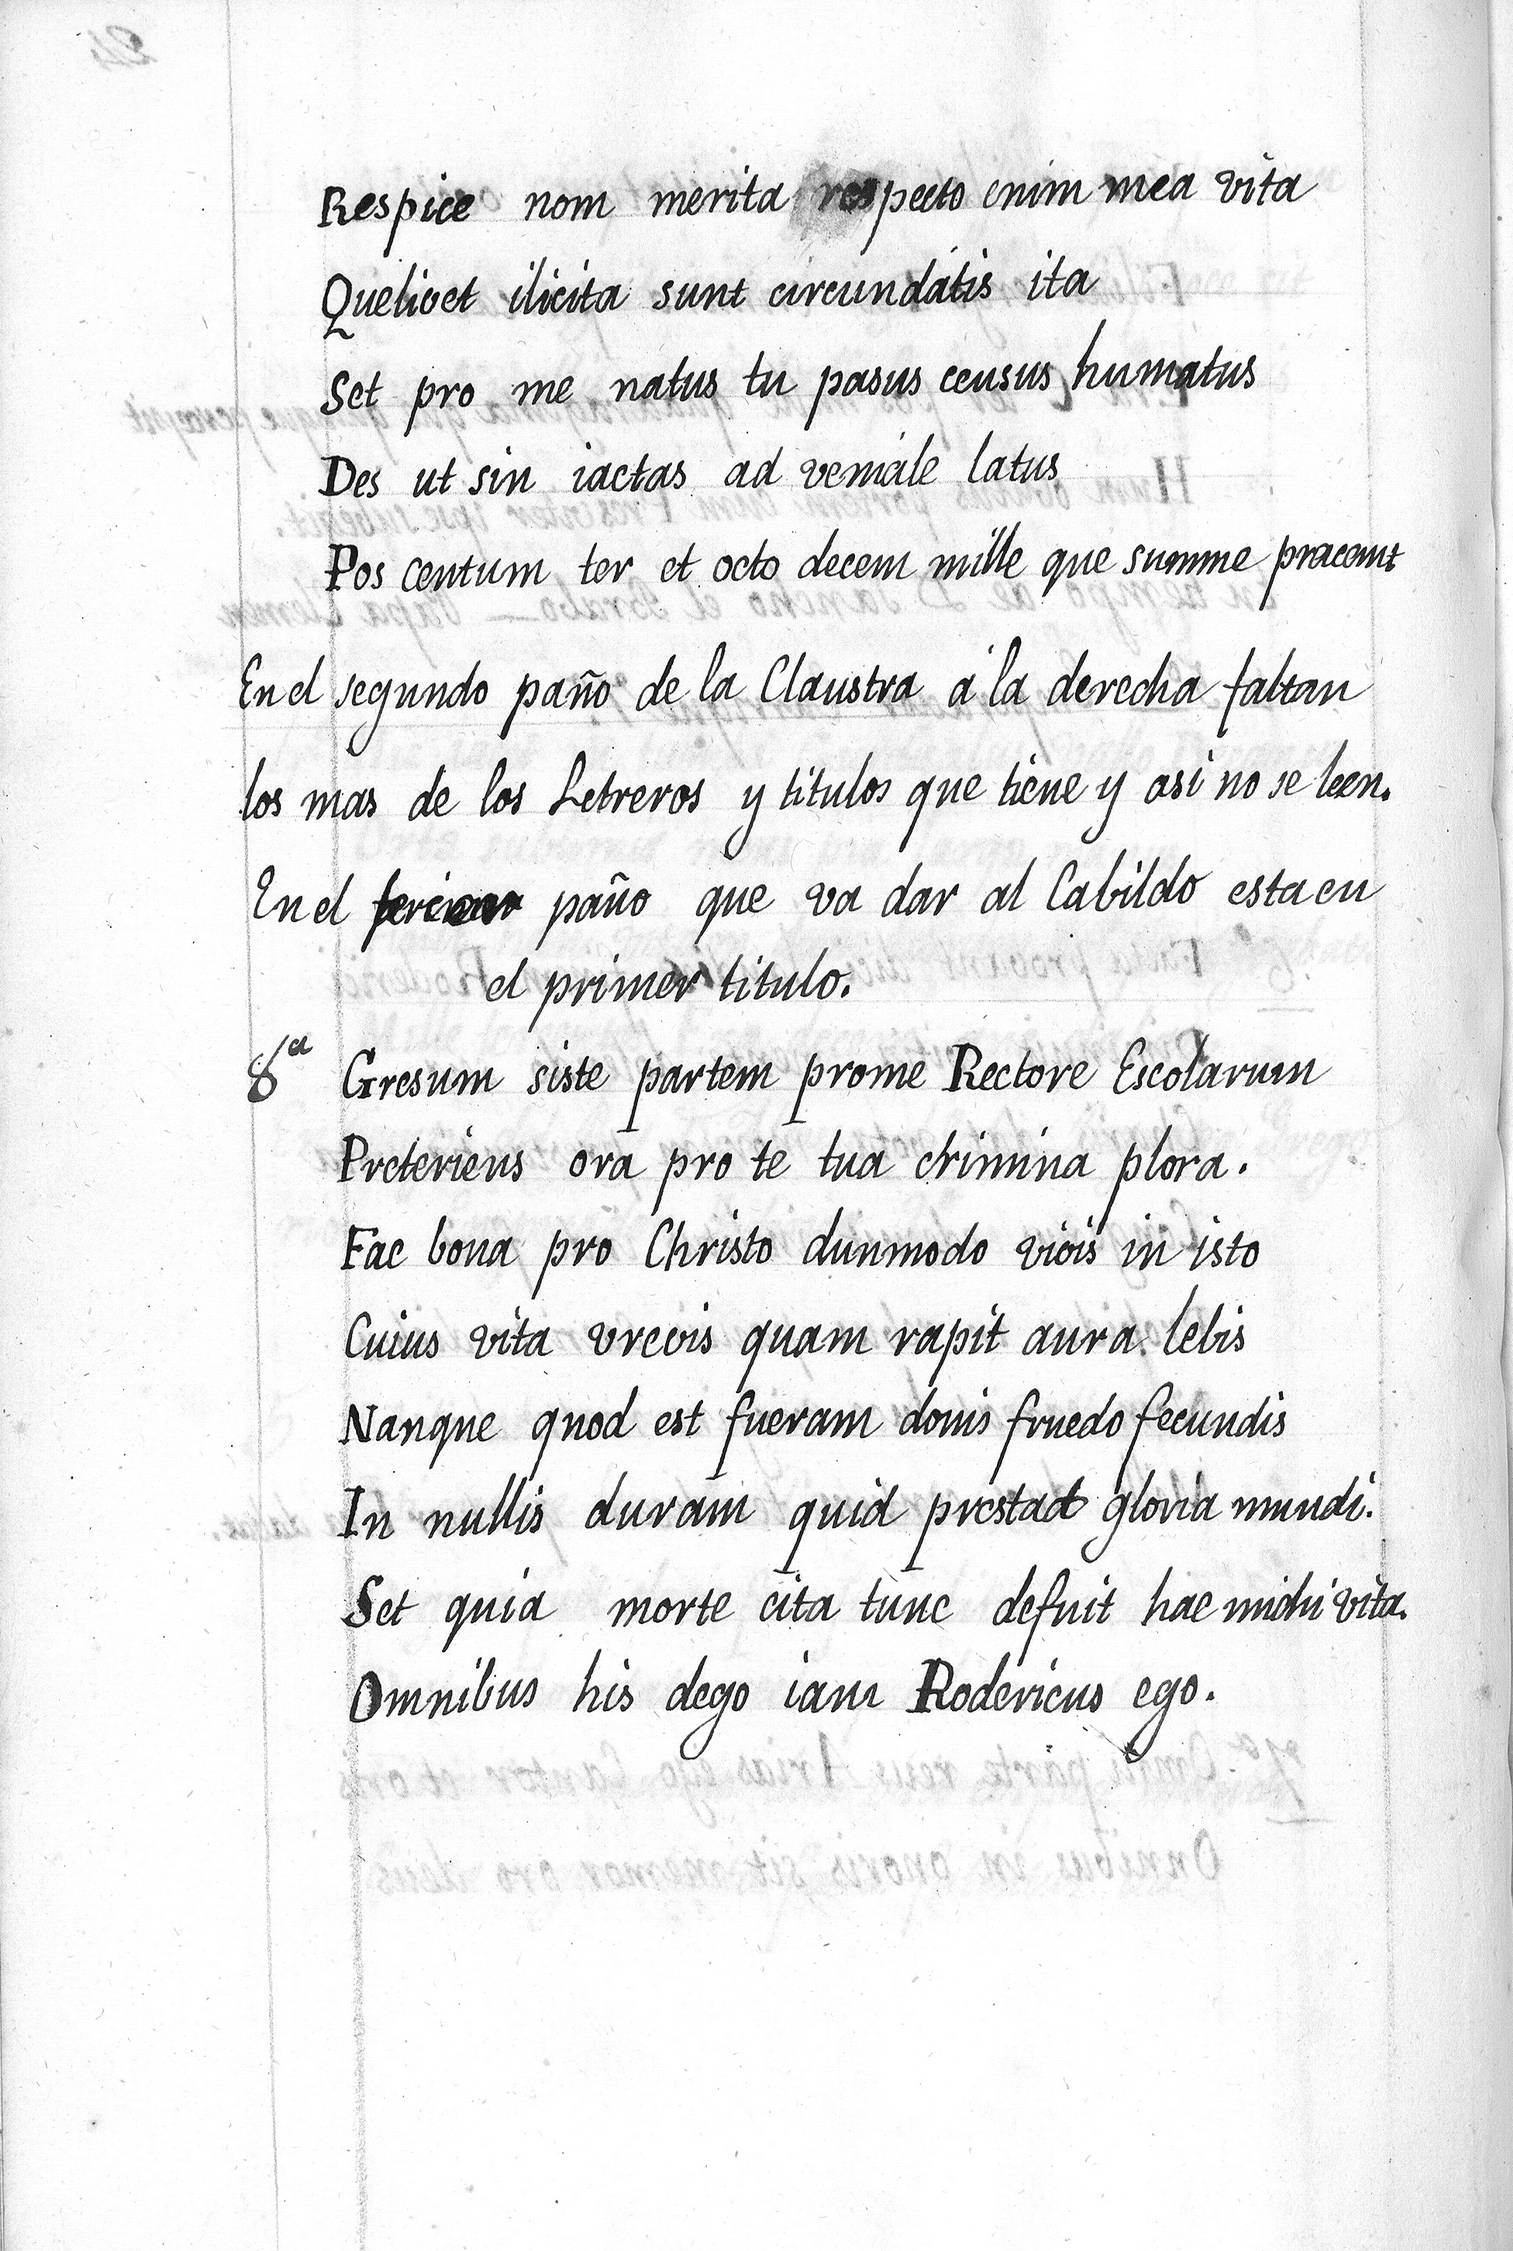 Respice nom merita respecto enim mea vita
Quelivet ilicita sunt circundatis ita
Set pro me natus tu pasus ceusus humatus
Des ut sin iactas ad veniale latus
Pos centum ter et octo decem mille que summe
En el segundo paño de la Claustra á la derecha faltan
los mas de los Letreros y titulos que tiene y asi no se leen.
En el tercer paño que va dar al Cabildo esta en
el primer titulo.
8ª Gresum siste partem prome Rectore Escolarum
Preteriens ora pro te tua chrimina plora.
Fac bona pro Christo dunmodo vivis in isto
Cuius vita vrevis quam rapit aura lebis
Nanque quod est fueram donis fruedo fecundis
In nullis duram quid prestad gloria mundi.
Set quia morte cita tunc defuit hae michi vita.
Omnibus his dego iam Rodericus ego.